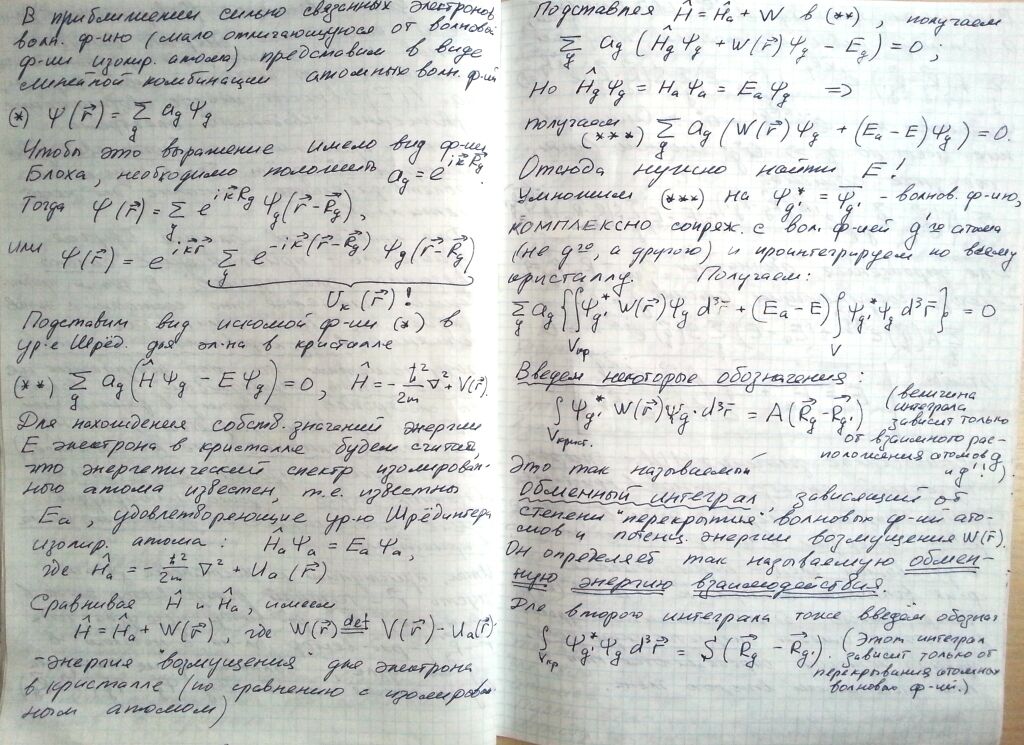 В приближении сильно связанных электронов
волн. ф-ию (мало отличающуюся от волновой
ф-ии изолир. атома) представим в виде
линейной комбинации атомных волн. ф-ий
(*) Ψ(r⃗) = Σ_g a_g Ψ_g
Чтобы это выражение имело вид ф-ии
Блоха, необходимо положить a_g = e^{i k⃗ R⃗_g}.
Тогда Ψ(r⃗) = Σ_g e^{i k⃗ R_g} Ψ_g(r⃗ - R⃗_g),
или Ψ(r⃗) = e^{i k⃗ r⃗} Σ_g e^{-i k⃗ (r⃗ - R⃗_g)} Ψ_g(r⃗ - R⃗_g)
U_k(r⃗)!
Подставим вид искомой ф-ии (*) в
ур-е Шрёд. для эл-на в кристалле
(**) Σ_g a_g (ĤΨ_g - EΨ_g) = 0, Ĥ = - ħ²/2m ∇² + V(r⃗).
Для нахождения собств. значений энергии
E электрона в кристалле будем считать,
что энергетический спектр изолирован-
ного атома известен, т.е. известны
E_a, удовлетворяющие ур-ю Шрёдингера
изолир. атома: Ĥ_a Ψ_a = E_a Ψ_a,
где Ĥ_a = - ħ²/2m ∇² + U_a(r⃗)
Сравнивая Ĥ и Ĥ_a, имеем
Ĥ = Ĥ_a + W(r⃗), где W(r⃗) def= V(r⃗) - U_a(r⃗)-
-энергия "возмущения" для электрона
в кристалле (по сравнению с изолирован-
ным атомом)
Подставляя Ĥ = Ĥ_a + W в (**), получаем
Σ_g a_g (Ĥ_g Ψ_g + W(r⃗)Ψ_g - E_g) = 0;
Но Ĥ_g Ψ_g = H_a Ψ_a = E_a Ψ_g =>
получаем (***) Σ_g a_g (W(r⃗)Ψ_g + (E_a - E)Ψ_g) = 0.
Отсюда нужно найти E!
Умножим (***) на Ψ_g'* = Ψ̄_g' - волнов. ф-ию,
комплексно сопряж. с вол. ф-ией g'го атома
(не gго, а другого) и проинтегрируем по всему
кристаллу. Получаем:
Σ_g a_g {∫_{Vкр} Ψ_g'* W(r⃗)Ψ_g d³r̄ + (E_a - E) ∫_V Ψ_g'* Ψ_g d³r̄} = 0
Введем некоторые обозначения:
∫_{Vкрист.} Ψ_g'* W(r⃗)Ψ_g · d³r̄ = A(R⃗_g - R⃗_g') (величина
интеграла
зависит только
от взаимного рас-
положения атомов g
и g'!)
Это так называемый
Обменный интеграл, зависящий от
степени "перекрытия" волновых ф-ий ато-
мов и потенц. энергии возмущения W(r⃗).
Он определяет так называемую обмен-
ную энергию взаимодействия.
Для второго интеграла тоже введём обознач
∫_{Vкр} Ψ_g'* Ψ_g d³r̄ = S(R⃗_g - R⃗_g'). (Этот интеграл
зависит только от
перекрывания атомных
волновых ф-ий.)